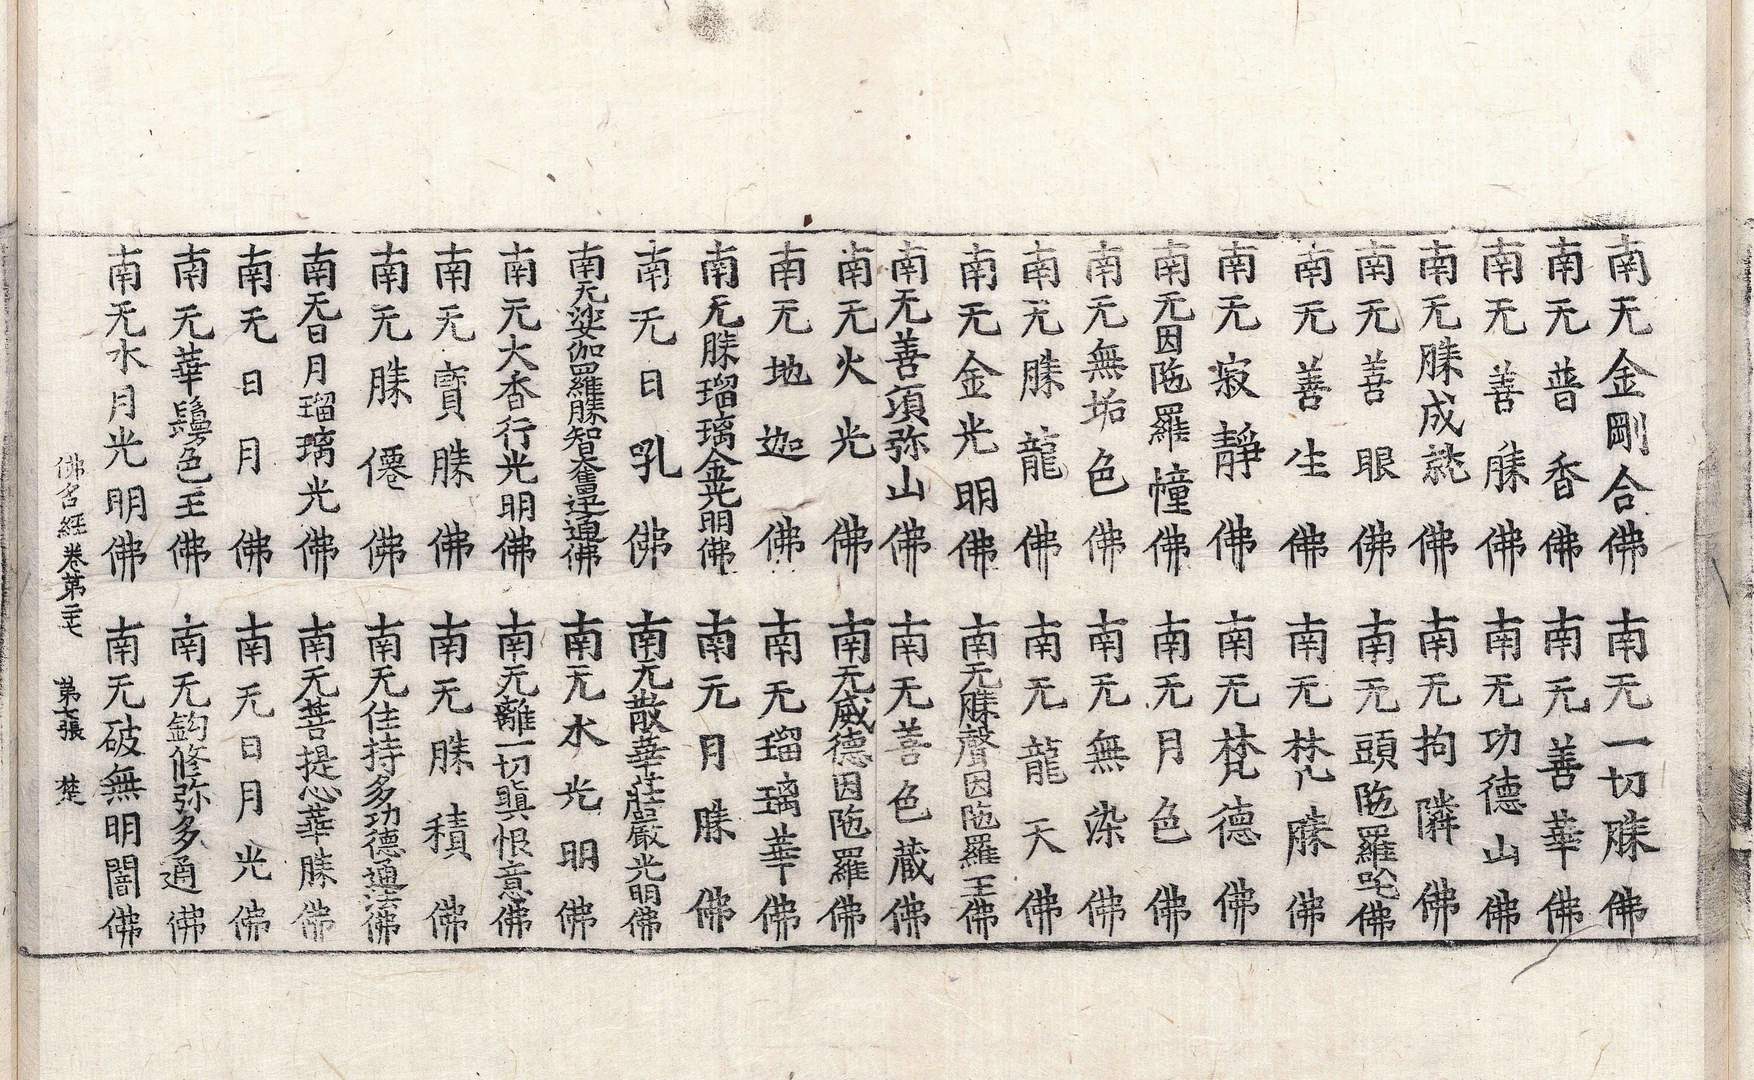 南无金剛合佛 南无一切勝佛
南无普香佛 南无善華佛
南无善勝佛 南无功德山佛
南无勝成就佛 南无拘隣佛
南无善眼佛 南无頭陁羅吒佛
南无善生佛 南无梵勝佛
南无寂靜佛 南无梵德佛
南无因陁羅幢佛 南无月色佛
南无無垢色佛 南无無染佛
南无勝龍佛 南无龍天佛
南无金光明佛 南无勝聲因陁羅王佛
南无善須弥山佛 南无善色蔵佛
南无火光佛 南无威德因陁羅佛
南无地迦佛 南无瑠璃華佛
南无勝瑠璃金光明佛 南无月勝佛
南无日乳佛 南无散華莊嚴光明佛
南无娑伽羅勝智奮迅通佛 南无水光明佛
南无大香行光明佛 南无離一切瞋恨意佛
南无寶勝佛 南无勝積佛
南无勝僊佛 南无住持多功德通法佛
南无日月瑠璃光佛 南无菩提心華勝佛
南无日月佛 南无日月光佛
南无華鬘色王佛 南无鈎修弥多通佛
南无水月光明佛 南无破無明闇佛
佛名経卷第二十七 第十張 楚